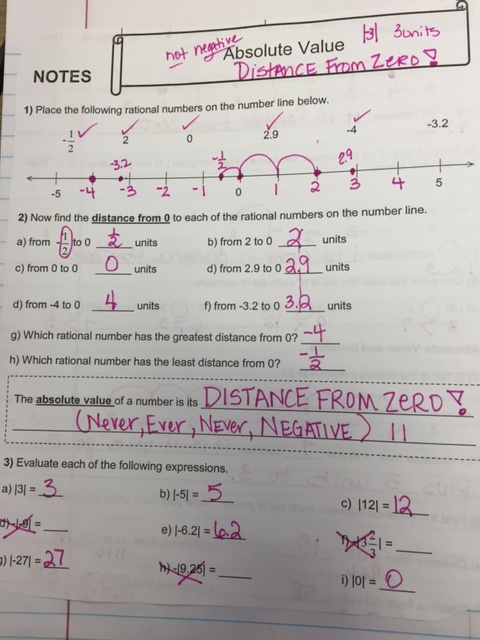 not negative |3| 3units
Absolute Value
DISTANCE FROM ZERO!
NOTES
1) Place the following rational numbers on the number line below.
-1/2 2 0 2.9 -4 -3.2
-3.2 -1/2 2.9
-5 -4 -3 -2 -1 0 1 2 3 4 5
2) Now find the distance from 0 to each of the rational numbers on the number line.
a) from -1/2 to 0 1/2 units b) from 2 to 0 2 units
c) from 0 to 0 0 units d) from 2.9 to 0 2.9 units
d) from -4 to 0 4 units f) from -3.2 to 0 3.2 units
g) Which rational number has the greatest distance from 0? -4
h) Which rational number has the least distance from 0? -1/2
The absolute value of a number is its DISTANCE FROM ZERO!
(Never, Ever, NEVER, NEGATIVE) | |
3) Evaluate each of the following expressions.
a) |3| = 3 b) |-5| = 5 c) |12| = 12
d) -|-9| = ___ e) |-6.2| = 6.2 f) -|3 2/3| = ___
g) |-27| = 27 h) -|9.25| = ___ i) |0| = 0